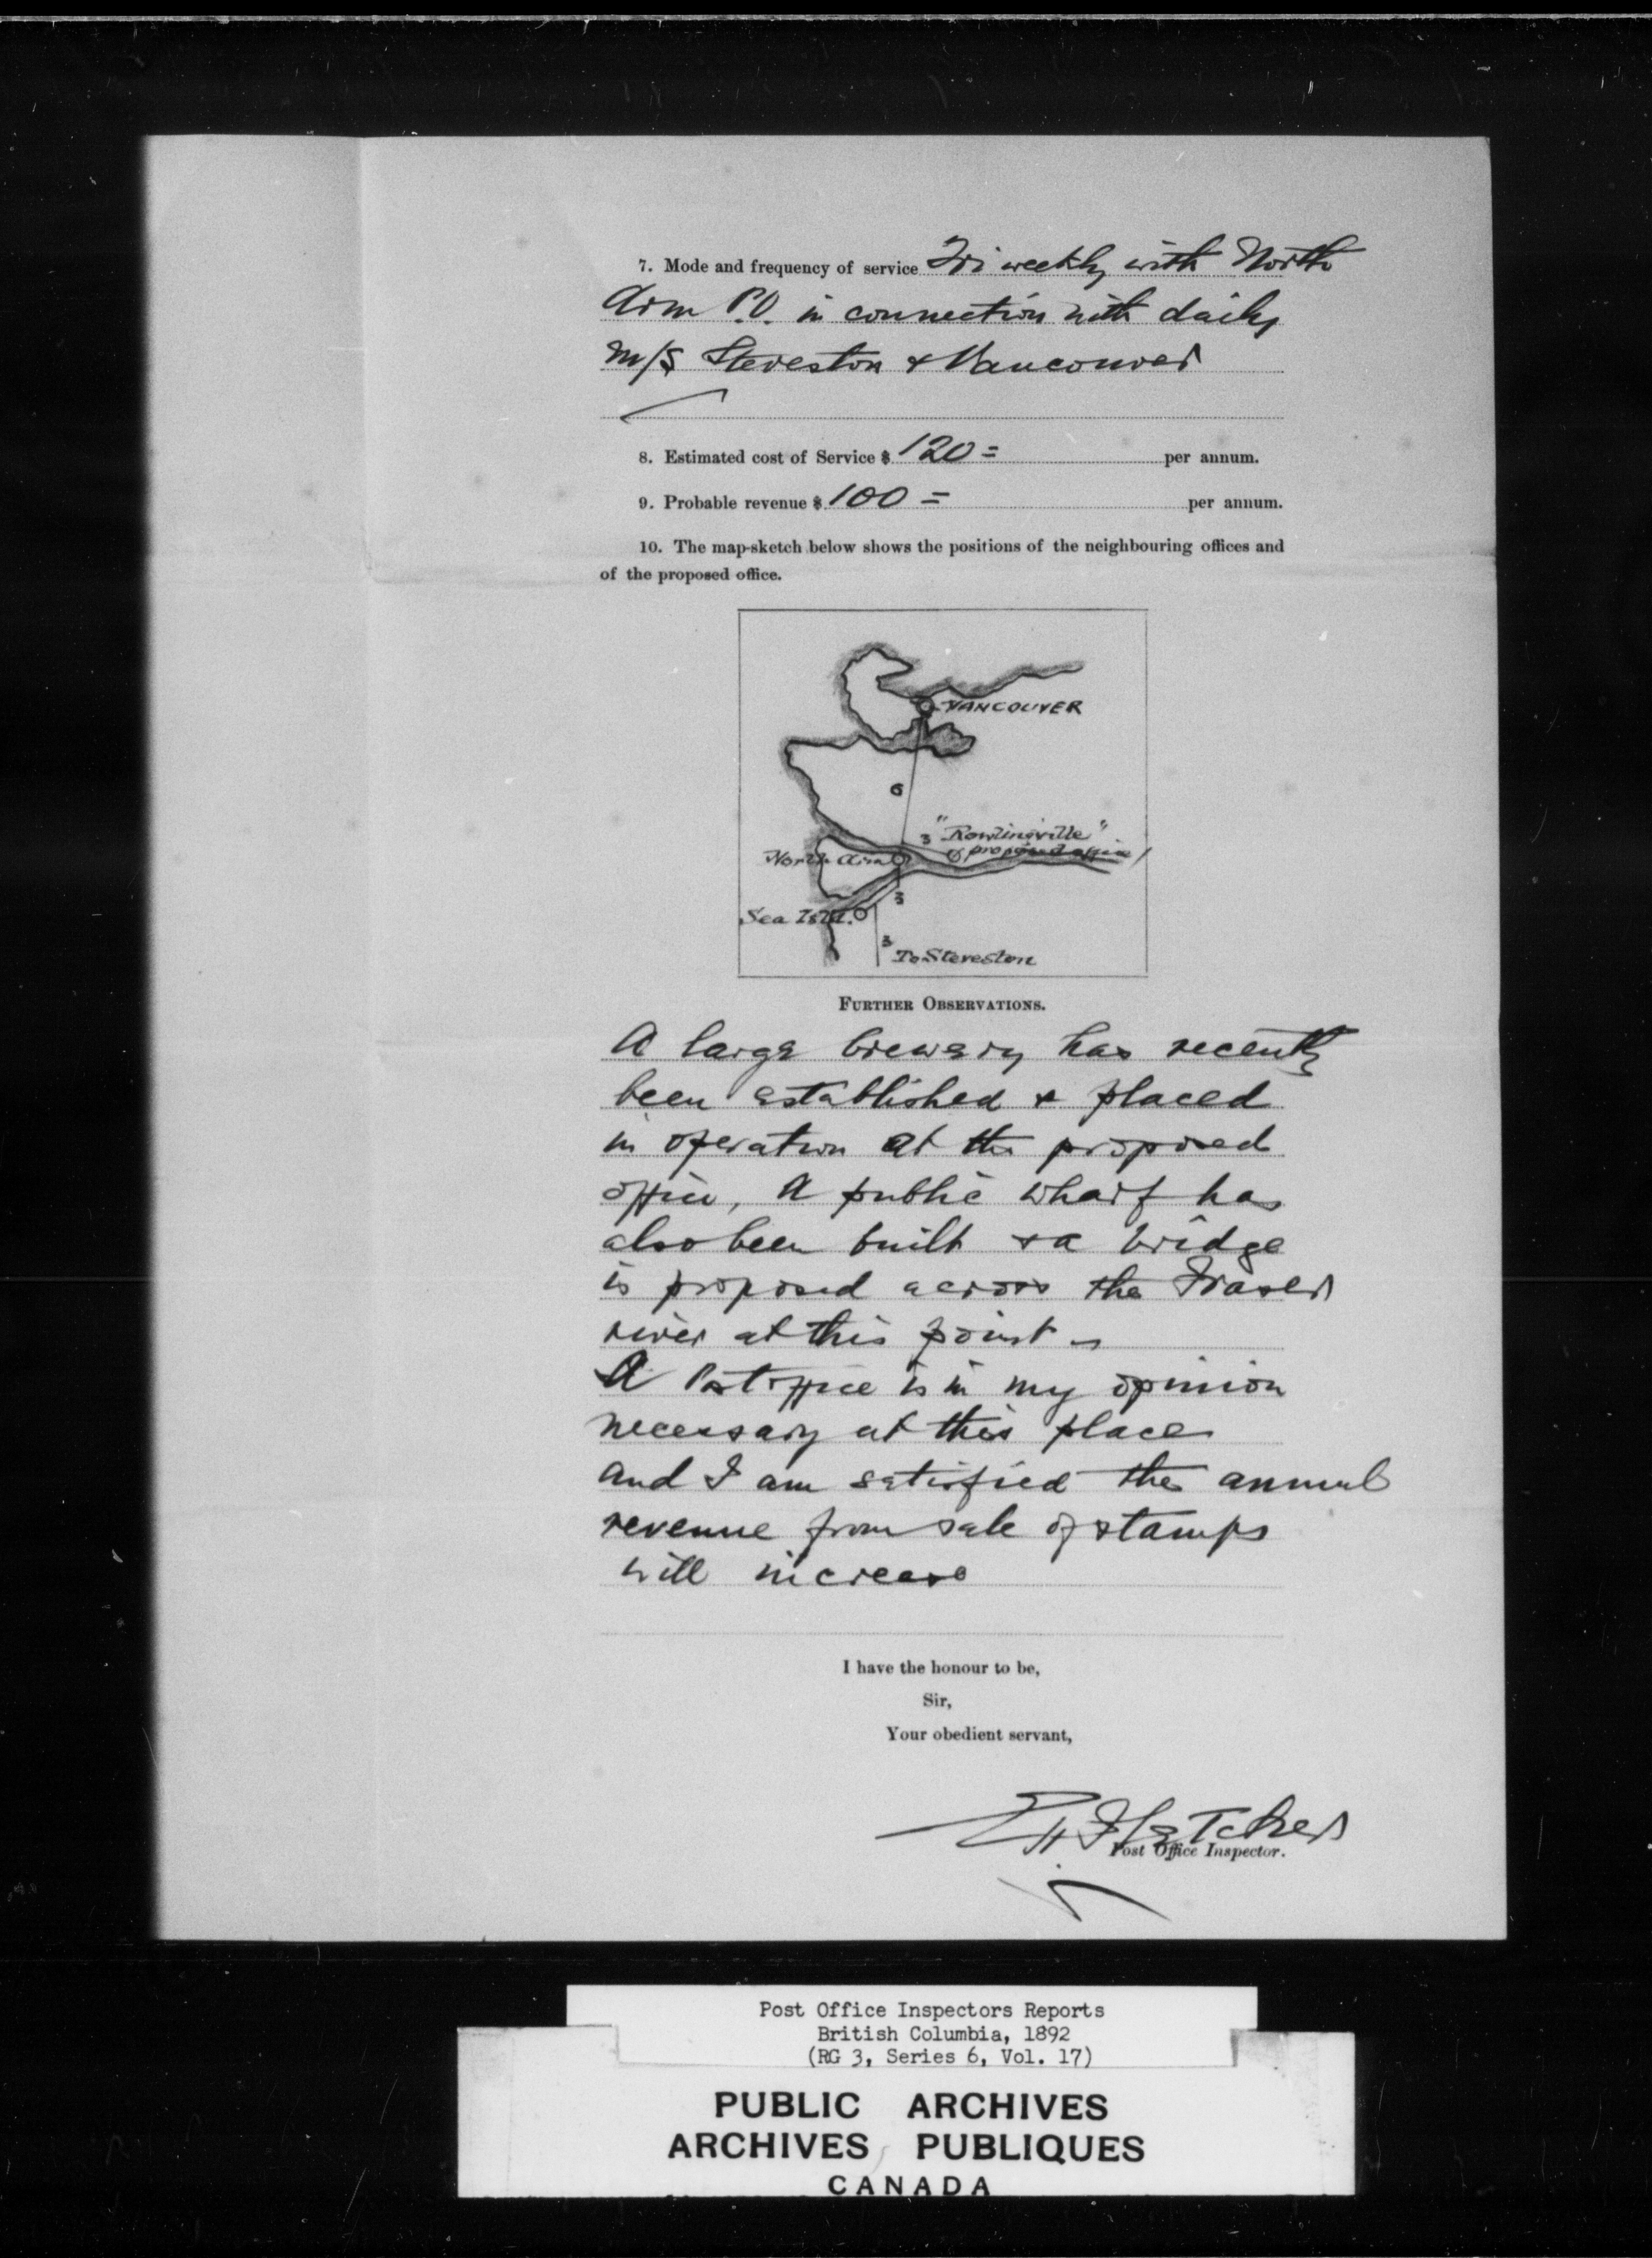 7. Mode and frequency of service Tri weekly with North
Arm P.O. in connection with daily
m/s Steveston & Vancouver
8. Estimated cost of Service $ 120 = per annum.
9. Probable revenue $ 100 = per annum.
10. The map-sketch below shows the positions of the neighbouring offices and
of the proposed office.
VANCOUVER
6
3 "Rowlinsville"
proposed office
North Arm
3
Sea Isld.
3
To Steveston
FURTHER OBSERVATIONS.
A large brewery has recently
been established & placed
in operation at the proposed
office, A public wharf has
also been built & a bridge
is proposed across the Fraser
river at this point
A Post office is in my opinion
necessary at this place
and I am satisfied the annual
revenue from sale of stamps
will increase
I have the honour to be,
Sir,
Your obedient servant,
EH Fletcher
Post Office Inspector.
Post Office Inspectors Reports
British Columbia, 1892
(RG 3, Series 6, Vol. 17)
PUBLIC ARCHIVES
ARCHIVES PUBLIQUES
CANADA